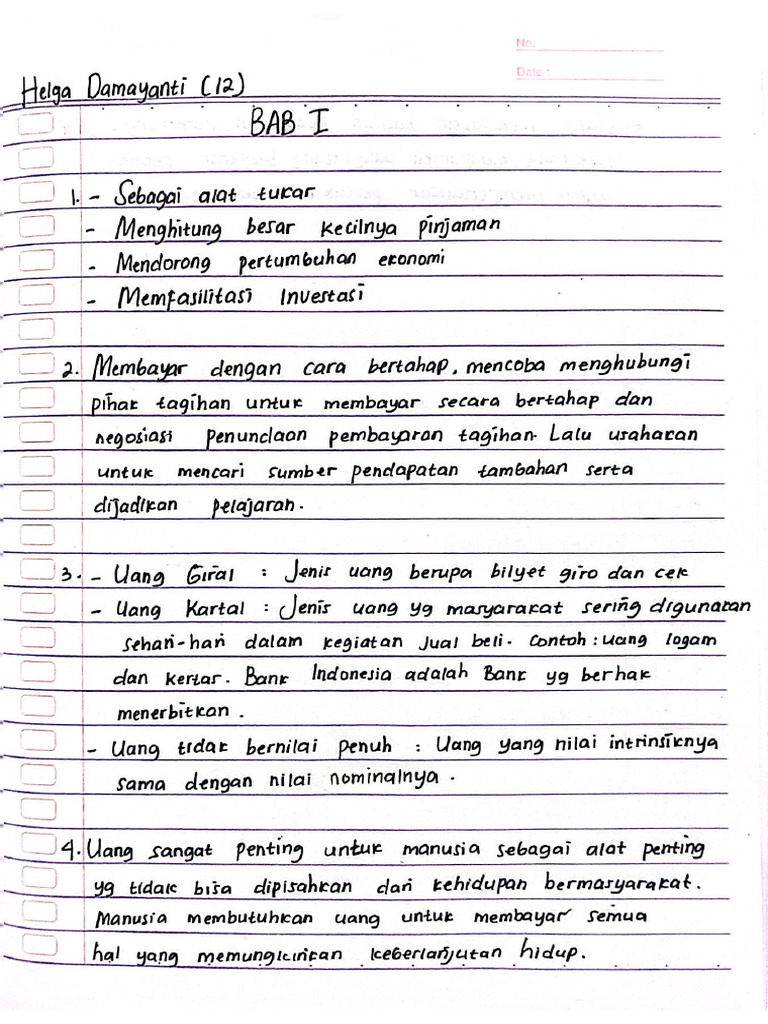 No.
Date :
Helga Damayanti (12)
BAB I
1. - Sebagai alat tukar
- Menghitung besar kecilnya pinjaman
- Mendorong pertumbuhan ekonomi
- Memfasilitasi Investasi
2. Membayar dengan cara bertahap, mencoba menghubungi
pihak tagihan untuk membayar secara bertahap dan
negosiasi penundaan pembayaran tagihan. Lalu usahakan
untuk mencari sumber pendapatan tambahan serta
dijadikan pelajaran.
3. - Uang Giral : Jenis uang berupa bilyet giro dan cek
- Uang Kartal : Jenis uang yg masyarakat sering digunakan
sehari-hari dalam kegiatan jual beli. Contoh : uang logam
dan kertas. Bank Indonesia adalah Bank yg berhak
menerbitkan.
- Uang tidak bernilai penuh : Uang yang nilai intrinsiknya
sama dengan nilai nominalnya.
4. Uang sangat penting untuk manusia sebagai alat penting
yg tidak bisa dipisahkan dari kehidupan bermasyarakat.
Manusia membutuhkan uang untuk membayar semua
hal yang memungkinkan keberlanjutan hidup.